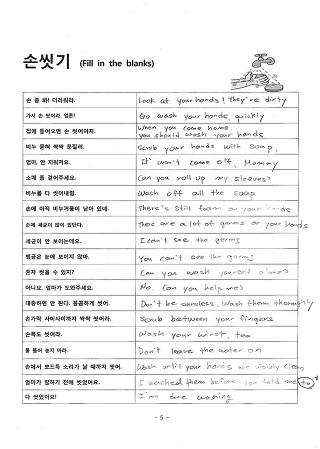 손씻기 (Fill in the blanks)
손 좀 봐! 더러워라.
Look at your hands! They're dirty
가서 손 씻어라. 얼른!
Go wash your hands, quickly
집에 들어오면 손 씻어야지.
When you come home,
you should wash your hands
비누 묻혀 싹싹 문질러.
Scrub your hands with soap.
엄마, 안 지워져요.
It won't come off, Mommy
소매 좀 걷어주세요.
Can you roll up my sleeves?
비누를 다 씻어내렴.
Wash off all the soap
손에 아직 비누거품이 남아 있네.
There's still foam on your hands
손에 세균이 많이 있단다.
There are a lot of germs on your hands
세균이 안 보이는데요.
I can't see the germs
병균은 눈에 보이지 않아.
You can't see the germs
혼자 씻을 수 있지?
Can you wash yourself alone?
아니요. 엄마가 도와주세요.
No. Can you help me?
대충하면 안 된다. 꼼꼼하게 씻어.
Don't be careless. Wash them thoroughly
손가락 사이사이까지 싹싹 씻어라.
Scrub between your fingers
손목도 씻어라.
Wash your wrist, too
물 틀어 놓지 마라.
Don't leave the water on
손에서 뽀드득 소리가 날 때까지 씻어.
Wash until your hands are visibly clean
엄마가 말하기 전에 씻었어요.
I washed them before you told me to
다 씻었어요!
I'm done washing
- 5 -